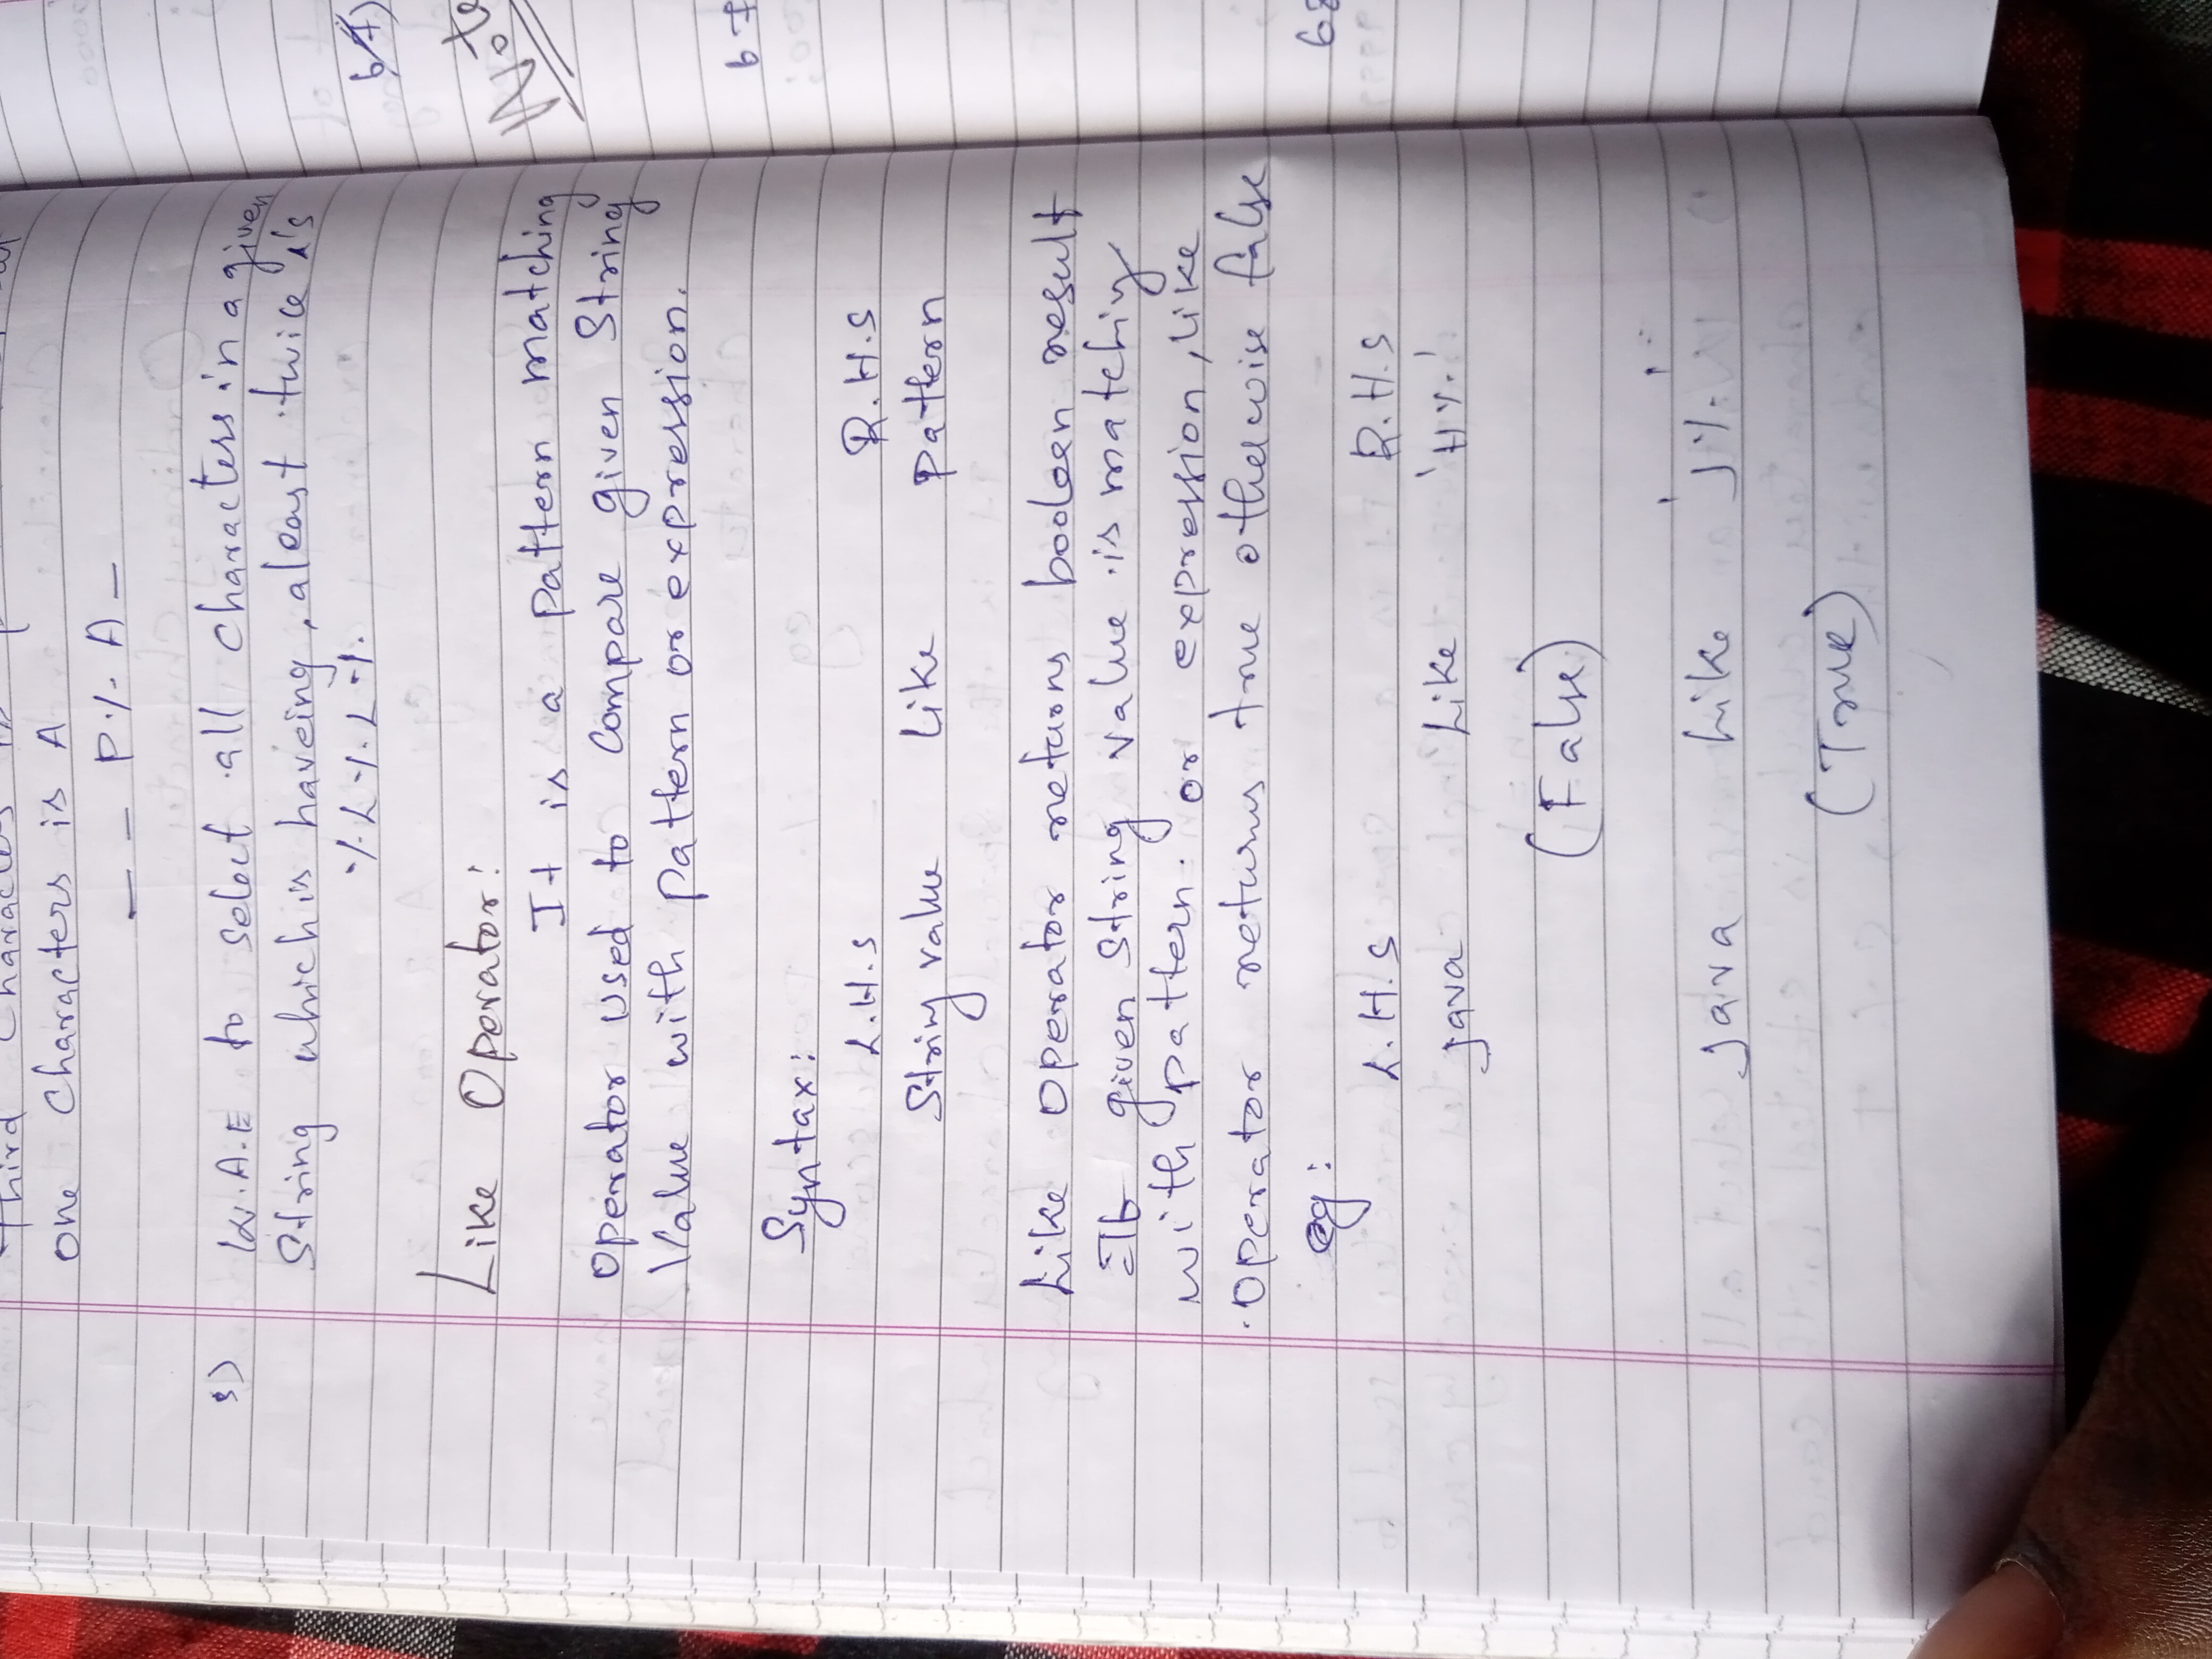 third
one characters is A
_ _ P%A_
s) W.A.E to select all characters in a given
String which is haveing, aleast twice is
%L%L%
Like Operator:
It is a pattern matching
operator used to compare given String
Value with pattern or expression.
Syntax:
L.H.S R.H.S
String value like pattern
Like operator returns boolean result
If given String value is matching
with pattern. or expression, like
operator returns true otherwise false
eg:
L.H.S R.H.S
java Like 'H%'
(False)
Java Like 'J%'
(True)
Note